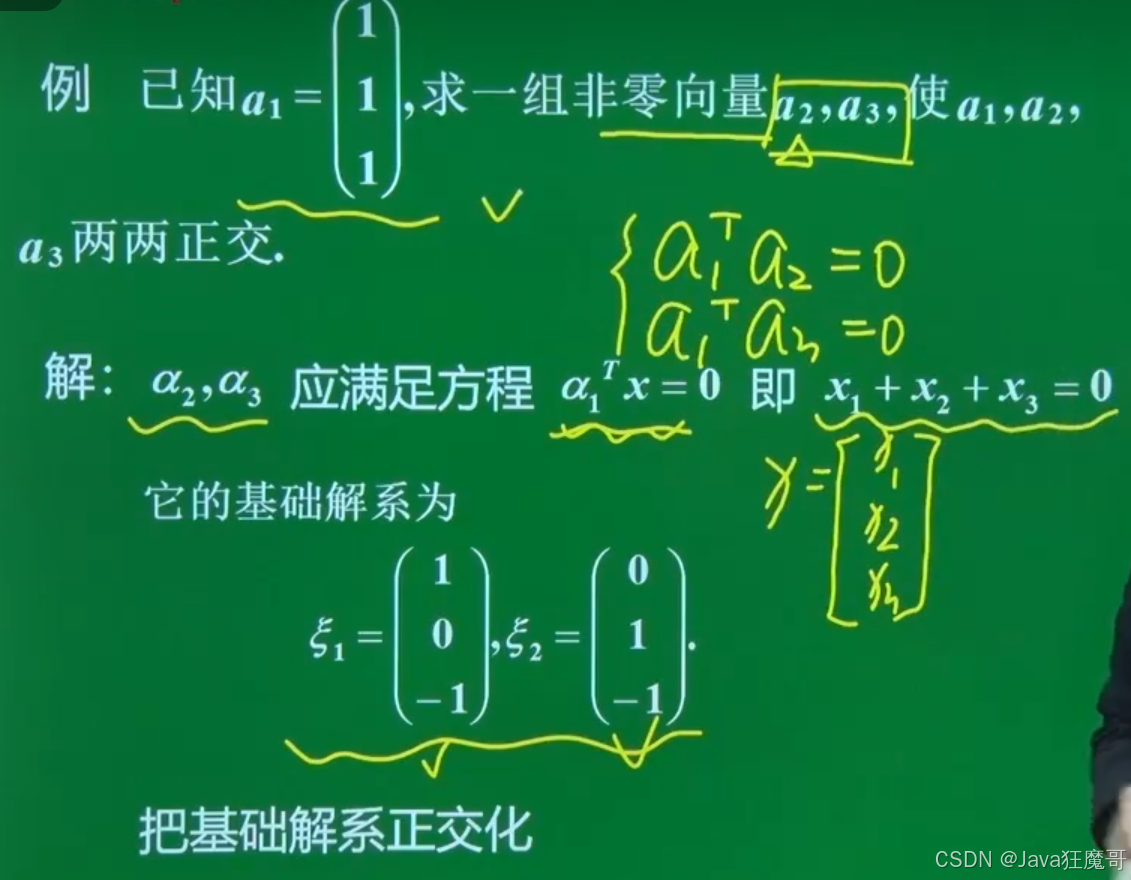 例 已知a₁ = (1 1 1), 求一组非零向量a₂,a₃, 使a₁,a₂,
a₃两两正交.
{ a₁ᵀ a₂ = 0
a₁ᵀ a₃ = 0
解: α₂,α₃ 应满足方程 α₁ᵀx = 0 即 x₁ + x₂ + x₃ = 0
x = [x₁ x₂ x₃]
它的基础解系为
ξ₁ = (1 0 −1), ξ₂ = (0 1 −1).
把基础解系正交化
CSDN @Java狂魔哥